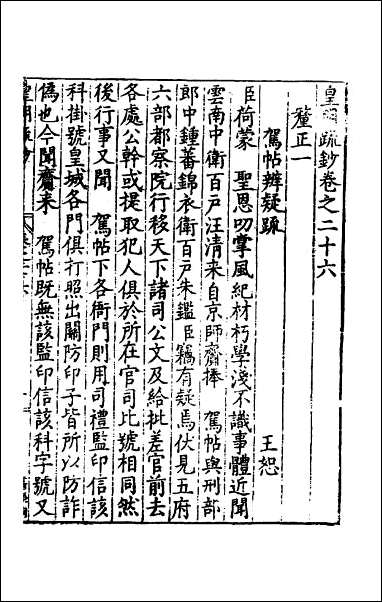 皇明疏鈔卷之二十六
釐正一
駕帖辨疑疏
王恕
臣荷蒙 聖恩叨掌風紀材朽學淺不識事體近聞
雲南中衛百戶汪清来自京師齎捧 駕帖與刑部
郎中鍾蕃錦衣衛百戶朱鑑臣竊有疑焉伏見五府
六部都察院行移天下諸司公文及給批差官前去
各處公幹或提取犯人俱於所在官司比號相同然
後行事又聞 駕帖下各衙門則用司禮監印信該
科掛號皇城各門俱打照出關防印子皆所以防詐
偽也今聞齎来 駕帖既無該監印信該科字號又